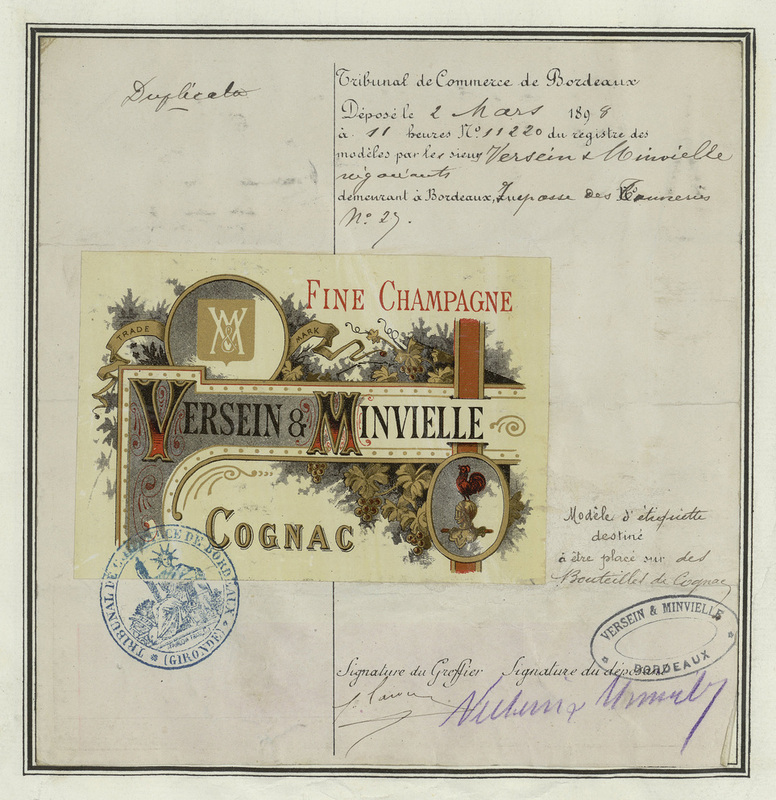 Duplicata
Tribunal de Commerce de Bordeaux
Déposé le 2 Mars 1898
à 11 heures N° 11220 du registre des
modèles par les sieurs Versein & Minvielle
négociants
demeurant à Bordeaux, Impasse des Tanneries
N° 27.
FINE CHAMPAGNE
TRADE MARK
VM
VERSEIN & MINVIELLE
COGNAC
Modèle d'étiquette
destiné
à être placé sur des
Bouteilles de Cognac
TRIBUNAL DE COMMERCE DE BORDEAUX
(GIRONDE)
VERSEIN & MINVIELLE
BORDEAUX
Signature du Greffier Signature du déposant
Versein & Minvielle